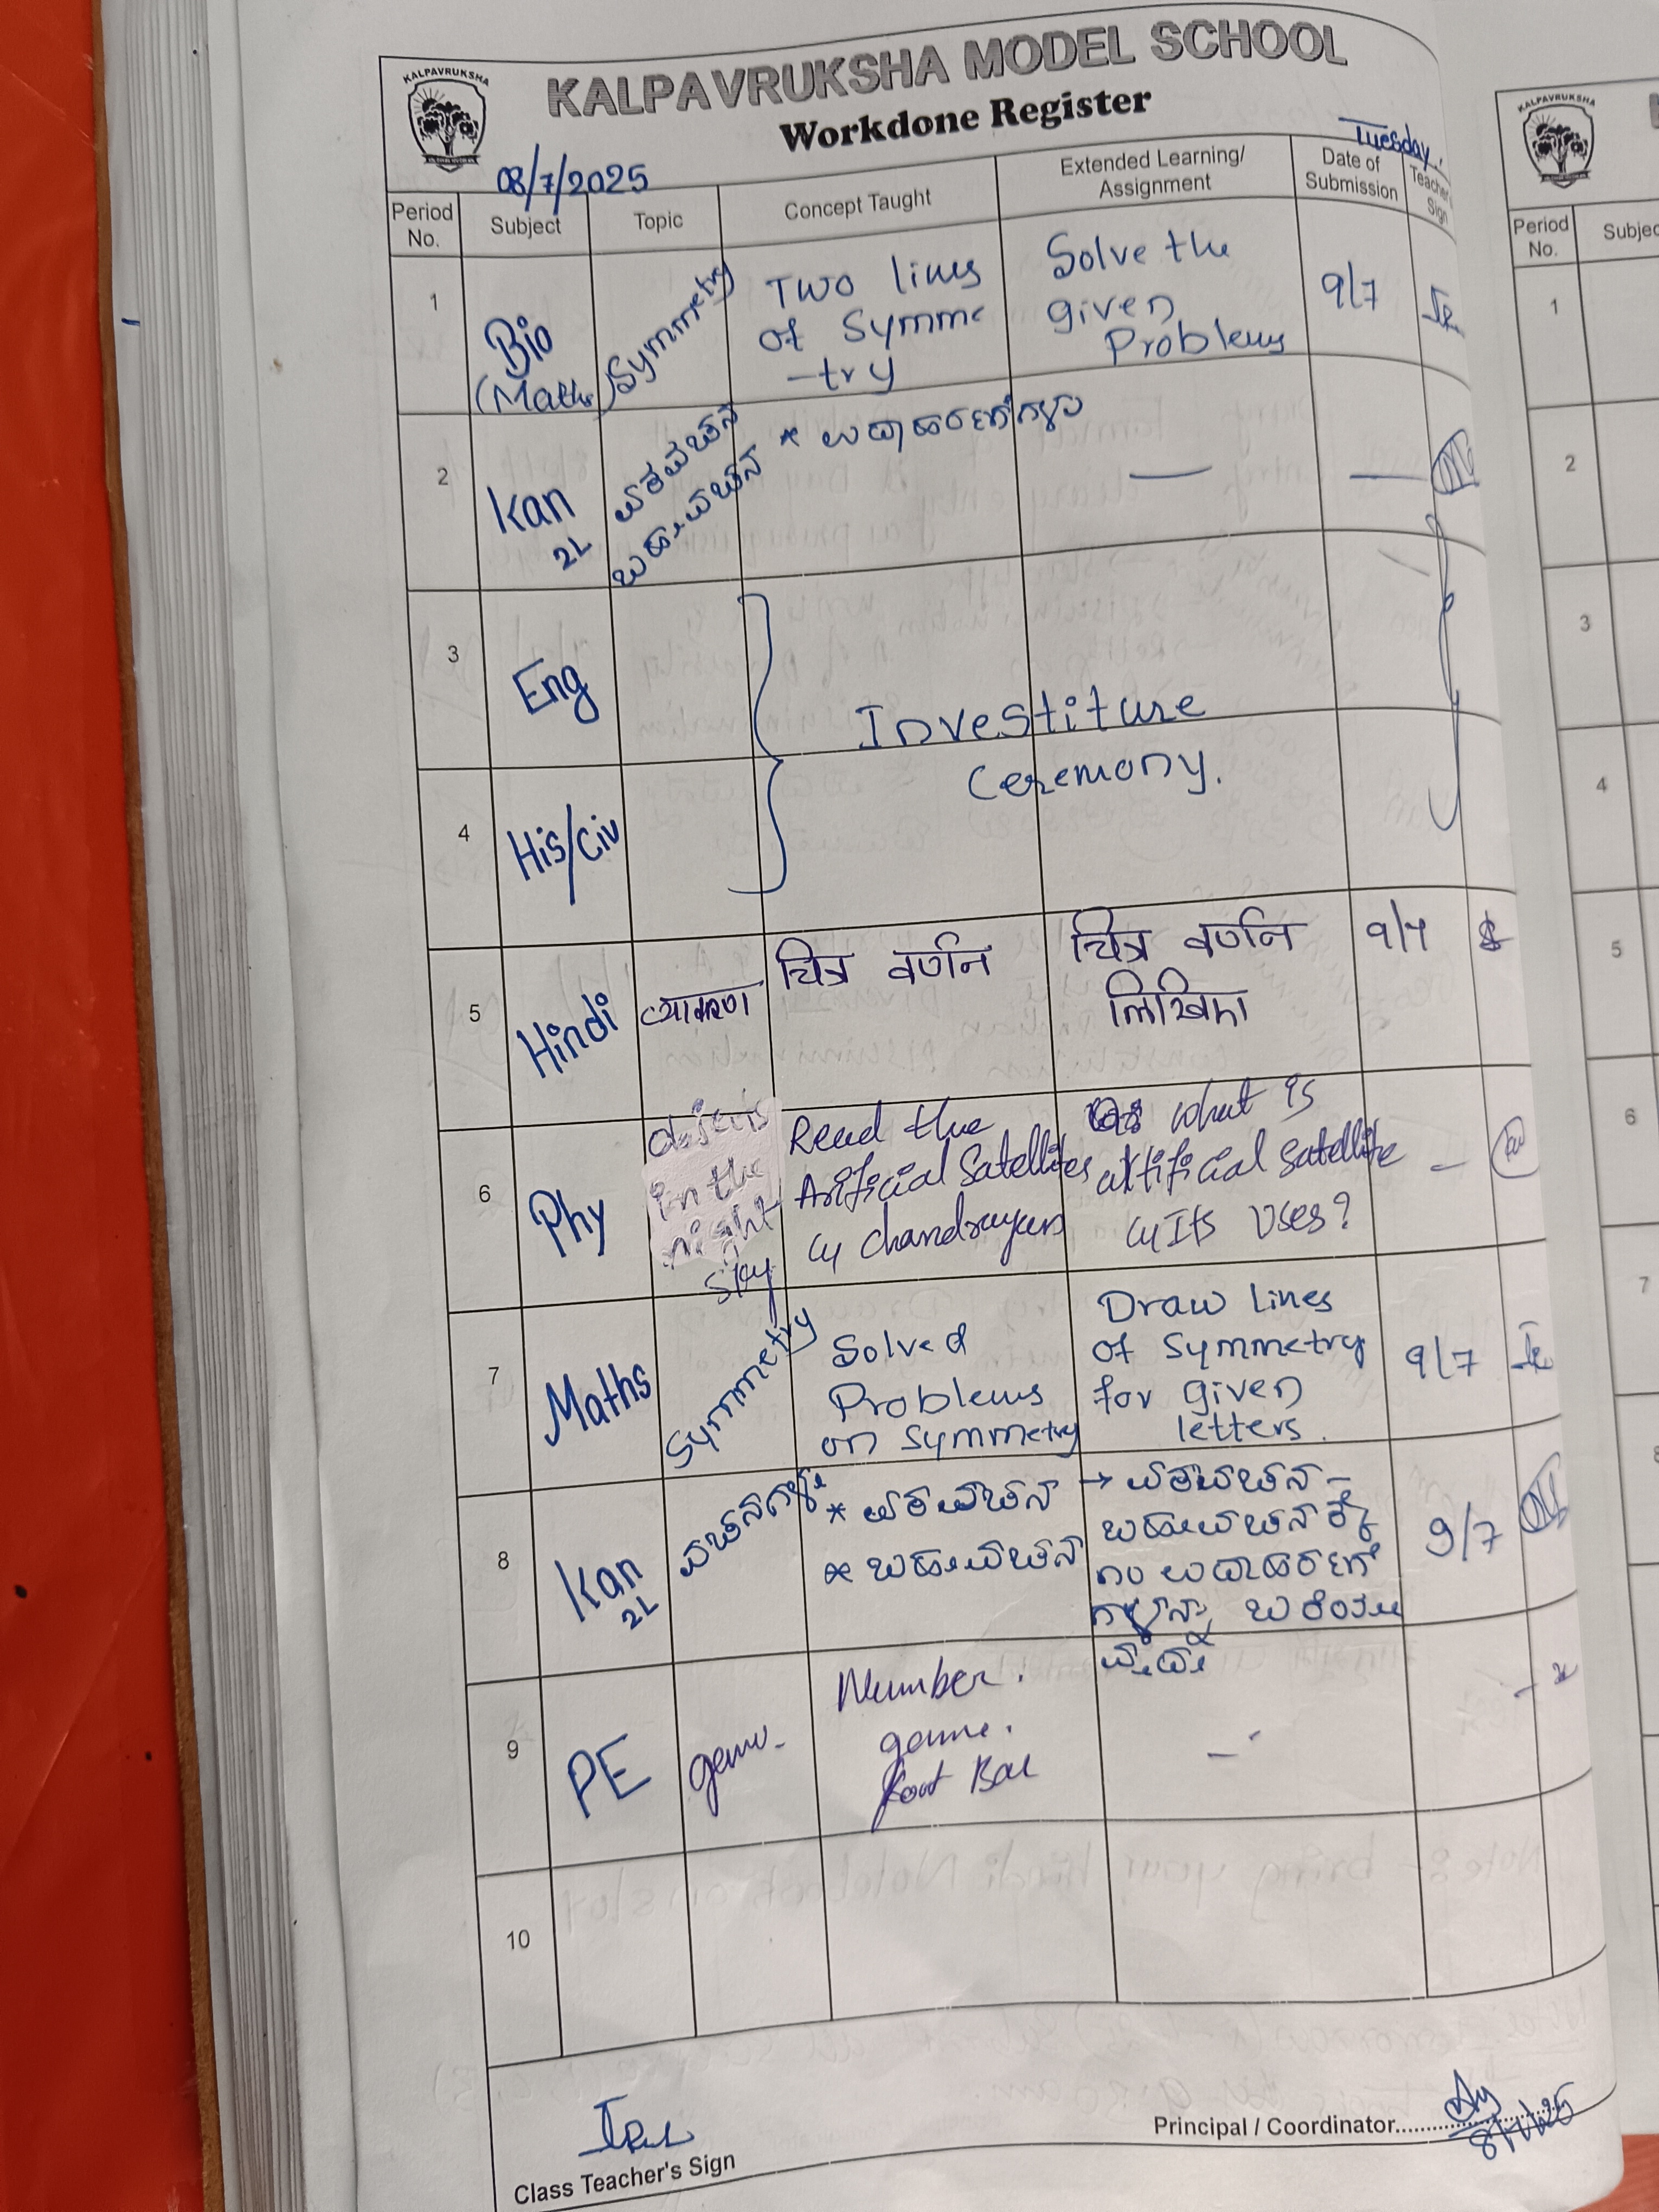 KALPAVRUKSHA
KALPAVRUKSHA MODEL SCHOOL
Workdone Register
08/7/2025
Tuesday
Period No.
Subject
Topic
Concept Taught
Extended Learning/ Assignment
Date of Submission
Teacher Sign
1
Bio
(Maths)
Symmetry
Two lines
of Symme
-try
Solve the
given
Problems
9/7
2
Kan
2L
ಏಕವಚನ
ಬಹುವಚನ
* ಉದಾಹರಣೆಗಳು
—
—
3
Eng
4
His/Civ
Investiture
Ceremony.
5
Hindi
व्याकरण
चित्र वर्णन
चित्र वर्णन
लिखिए
9/7
6
Phy
in the
night
sky
Read the
Arificial Satellites
chandrayan
what is
artificial satellite
Its Uses?
–
7
Maths
Symmetry
Solved
Problems
on symmetry
Draw lines
of symmetry
for given
letters.
9/7
8
Kan
2L
ವಚನಗಳು
* ಏಕವಚನ
* ಬಹುವಚನ
→ ಏಕವಚನ –
ಬಹುವಚನಕ್ಕೆ
೧೦ ಉದಾಹರಣೆ
ಗಳನ್ನು ಬರೆಯಿರಿ
9/7
9
PE
game
Number.
game.
Foot Ball
–
–
10
Class Teacher's Sign
Principal / Coordinator
8/7/25
KALPAVRUKSHA
Period No.
Subjec
1
2
3
4
5
6
7
8